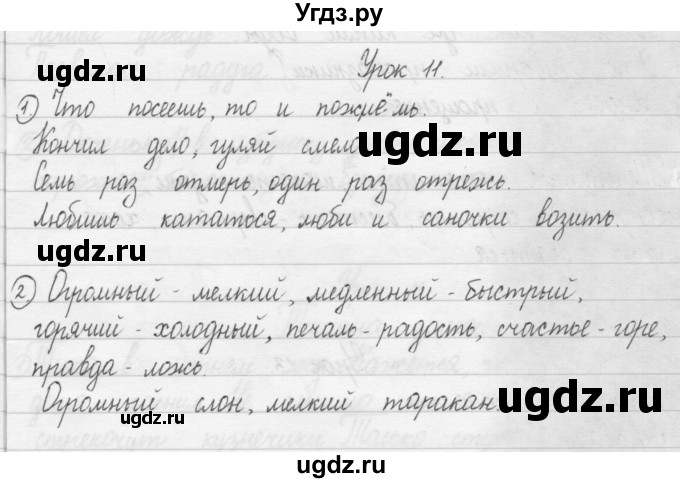 Угдз.ру
Урок 11.
1) Что посеешь, то и пожнёшь.
Кончил дело, гуляй смело
Семь раз отмерь, один раз отрежь.
Любишь кататься, люби и саночки возить.
2) Огромный - мелкий, медленный - быстрый,
горячий - холодный, печаль - радость, счастье - горе,
правда - ложь.
Огромный слон, мелкий таракан.
ugdz.ru
ugdz.ru
ugdz.ru
ugdz.ru
ugdz.ru
ugdz.ru
ugdz.ru